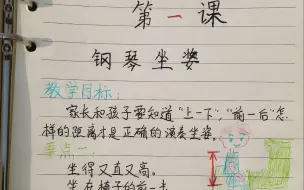 第一课
钢琴坐姿
教学目标:
家长和孩子要知道“上一下”,“前一后”怎
样的距离才是正确的演奏坐姿
要点一
坐得又直又高。
坐在椅子的前一半